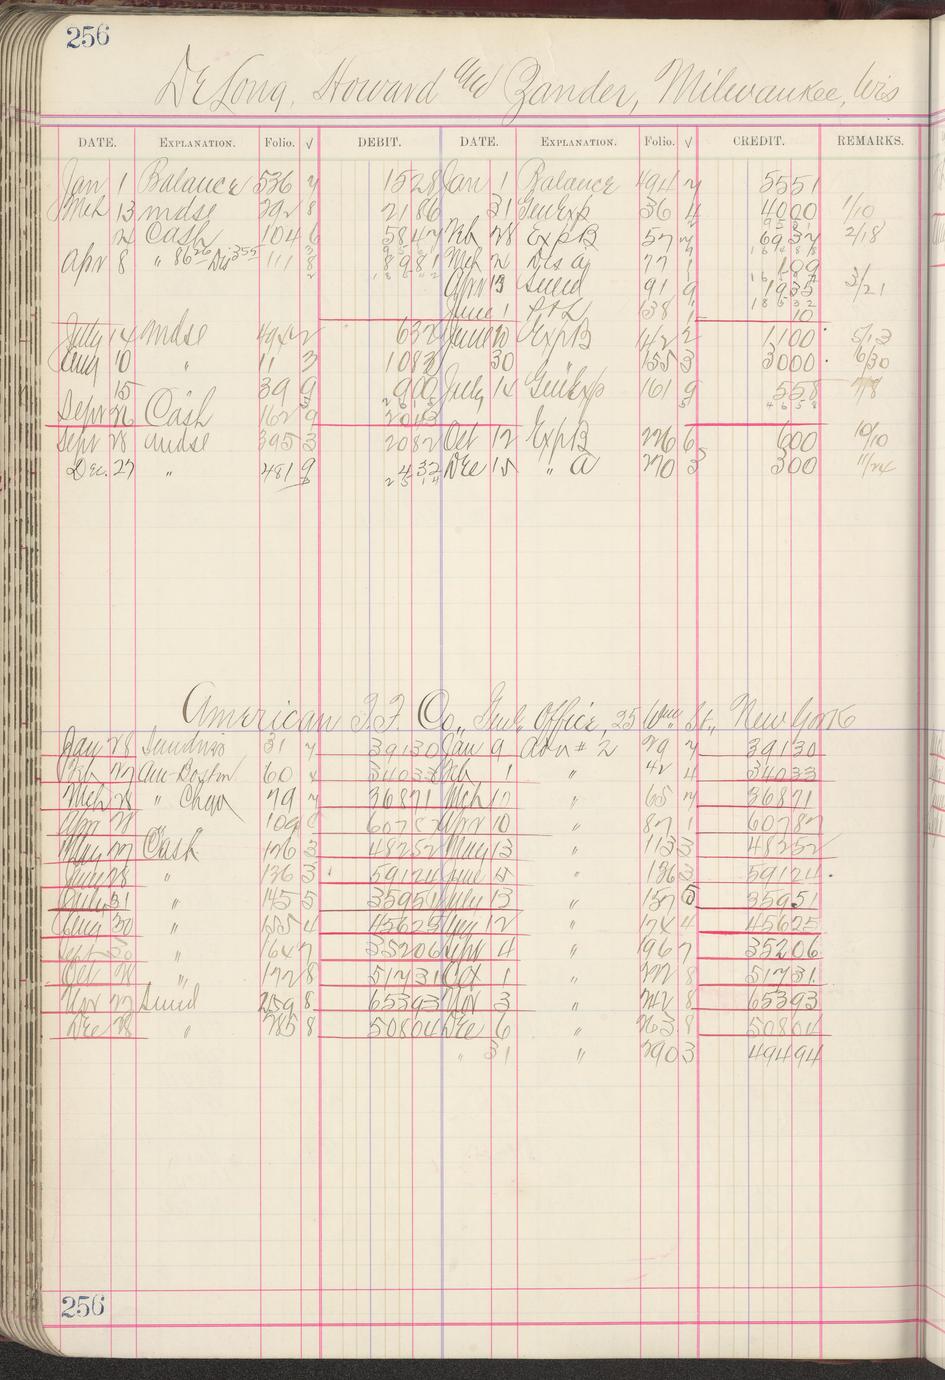 256
DeLong, Howard and Zander, Milwaukee, Wis
DATE. EXPLANATION. Folio. √ DEBIT. DATE. EXPLANATION. Folio. √ CREDIT. REMARKS.
Jan 1 Balance 536 1528 Jan 1 Balance 494 5551
Mch 13 mdse 292 8 2186 31 GenExp 36 4 4000 1/10
Cash 104 6 Feb 28 ExpB 57 6937 2/18
Apr 8 " 86 Dis 355 111 8 8981 Mch Dis a 77 109
Apr 13 91 9 1935 3/21
June 1 P&L 138 1 10
July 14 mdse 632 June 10 ExpB 142 2 1100 5/13
Aug 10 " 11 3 30 155 3 3000 6/30
15 39 9 900 July 14 GenExp 161 9 558 7/8
2 6 1 5 4 6 5 8
Sept 26 Cash 162 9 2043
Sept 28 mdse 395 3 2082 Oct 12 ExpB 226 6 600 10/10
Dec. 27 " 481 9 432 Dec 15 " A 270 3 300 11/24
2 5 1 4
American T.F. Co., Genl. Office, 25 Wm St., New York
Jan 28 Sundries 31 39130 Jan 9 Advn # 2 29 39130
Feb 27 Am-Boston 60 34033 Feb 1 " 42 4 34033
Mch 28 " Chga 79 36871 Mch 12 " 65 36871
Apr 28 109 60787 Apr 10 " 87 1 60787
May 27 Cash 126 3 48252 May 13 " 113 3 48252
June 28 " 136 3 59124 June 5 " 136 3 59124
July 31 " 145 5 35951 July 13 " 157 5 35951
Aug 30 " 155 4 45625 Aug 12 " 174 4 45625
Sept 30 " 164 7 35206 Sept 4 " 196 7 35206
Oct 28 " 172 8 51731 Oct 1 " 222 8 51731
Nov 27 259 8 65393 Nov 3 " 242 8 65393
Dec 28 " 285 8 50804 Dec 6 " 263 8 50804
" 31 " 290 3 49494
256